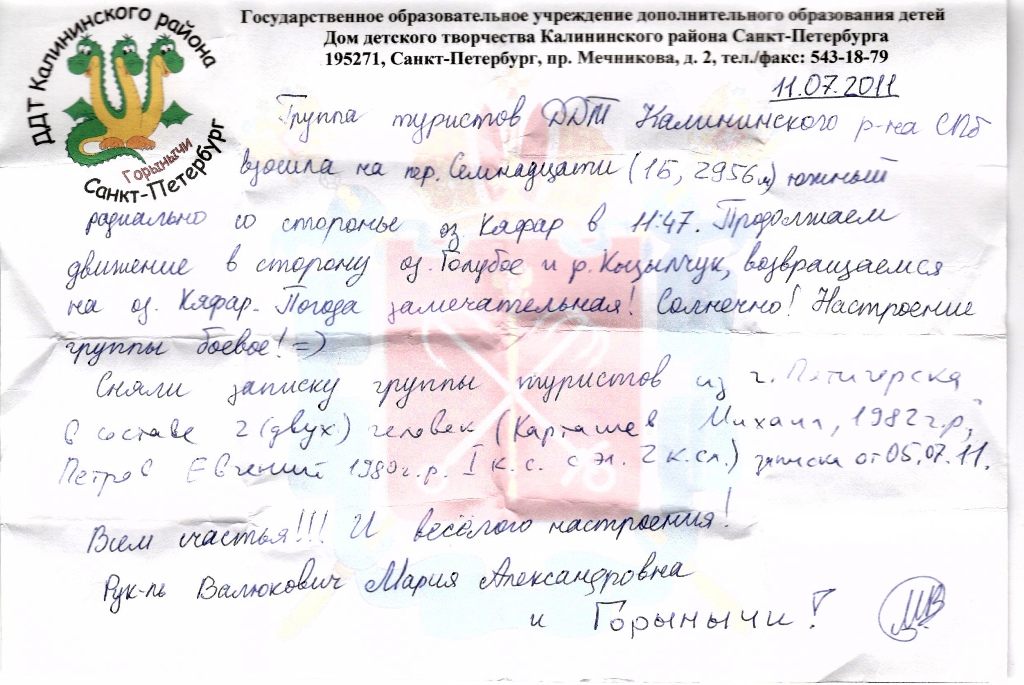 ДДТ Калининского района
Горынычи
Санкт-Петербург
Государственное образовательное учреждение дополнительного образования детей
Дом детского творчества Калининского района Санкт-Петербурга
195271, Санкт-Петербург, пр. Мечникова, д. 2, тел./факс: 543-18-79
11.07.2011
Группа туристов ДДТ Калининского р-на СПб
взошла на пер. Семнадцати (1Б, 2956м) южный
радиально со стороны оз. Кяфар в 11:47. Продолжаем
движение в сторону оз. Голубое и р. Кызылчук, возвращаемся
на оз. Кяфар. Погода замечательная! Солнечно! Настроение
группы боевое! =)
Сняли записку группы туристов из г. Пятигорска
в составе 2 (двух) человек (Карташев Михаил, 1982 г.р.,
Петров Евгений 1980г.р. I к.с. с эл. 2 к.сл.) записка от 05.07.11.
Всем счастья!!! И весёлого настроения!
Рук-ль Валюкович Мария Александровна
и Горынычи!